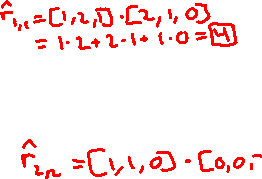 r̂₁,₁ = [1, 2, 1] · [2, 1, 0]
= 1 · 2 + 2 · 1 + 1 · 0 = 4
r̂₂,₂ = [1, 1, 0] · [0, 0,